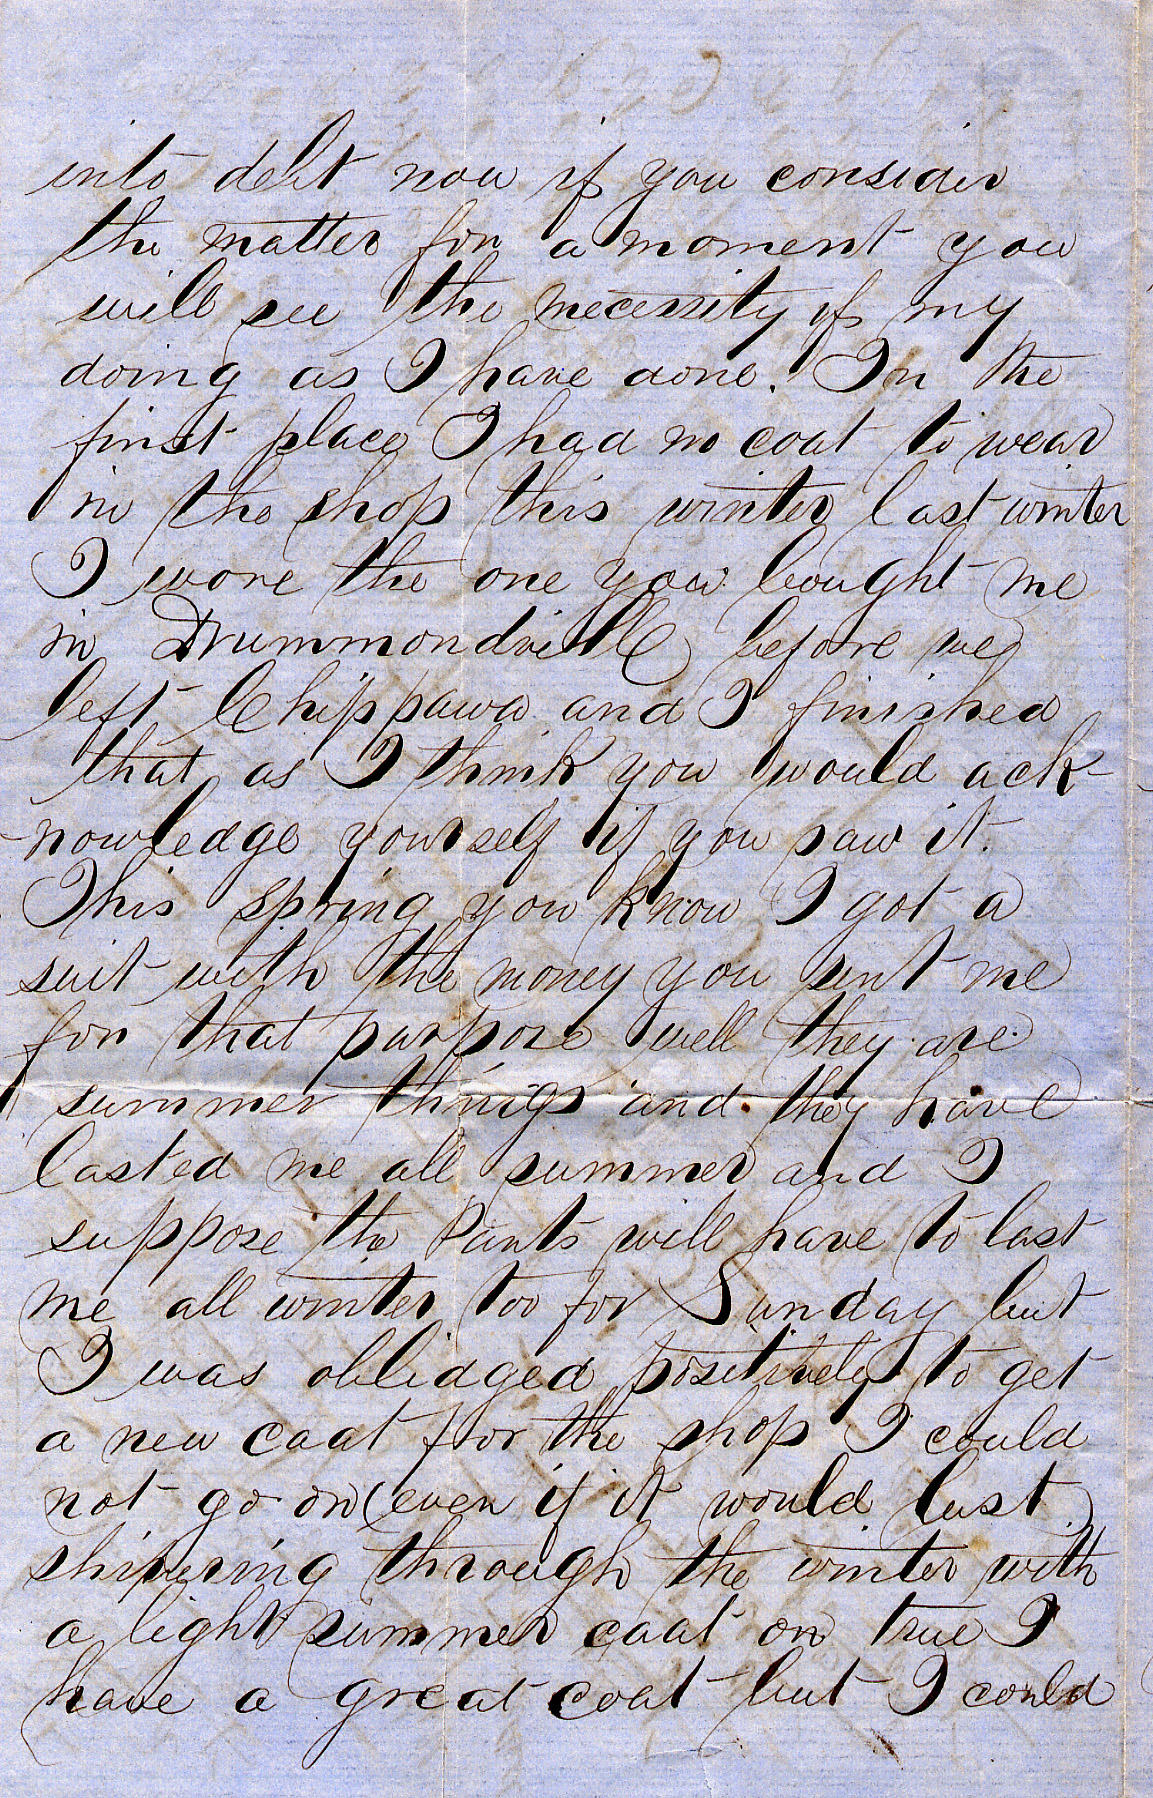 into debt now if you consider
the matter for a moment you
will see the necessity of my
doing as I have done. In the
first place I had no coat to wear
in the shop this winter last winter
I wore the one you bought me
in Drummondville before we
left Chippawa and I finished
that as I think you would ack-
nowledge yourself if you saw it.
This spring you know I got a
suit with the money you sent me
for that purpose well they are
summer things and they have
lasted me all summer and I
suppose the Pants will have to last
me all winter too for Sunday but
I was oblidged positively to get
a new coat for the shop I could
not go on (even if it would last)
shivering through the winter with
a light summer coat on true I
have a great coat but I could